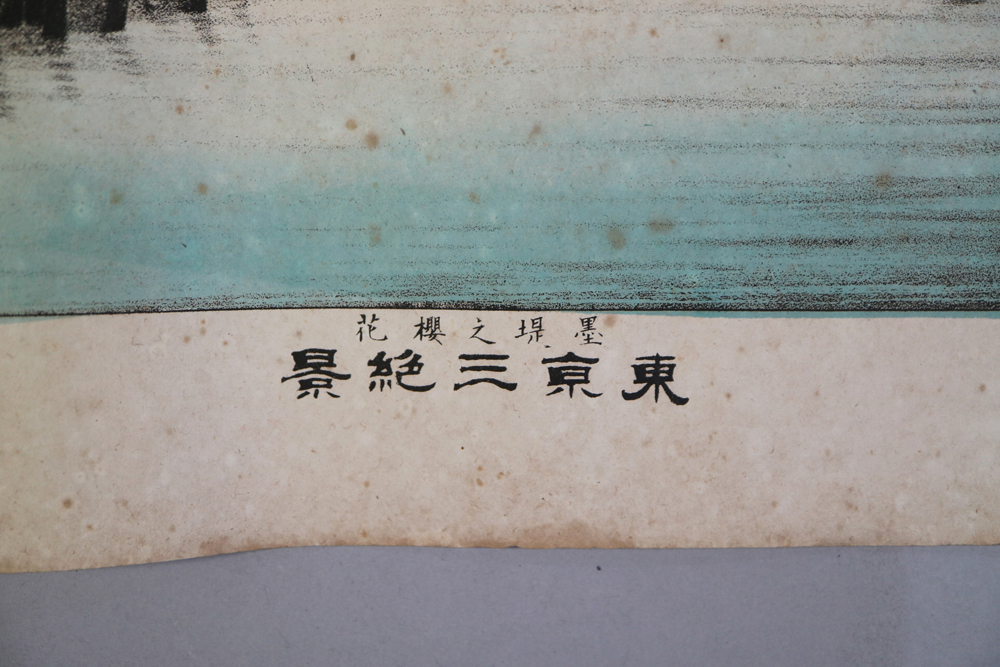 墨堤之櫻花
東京三絶景